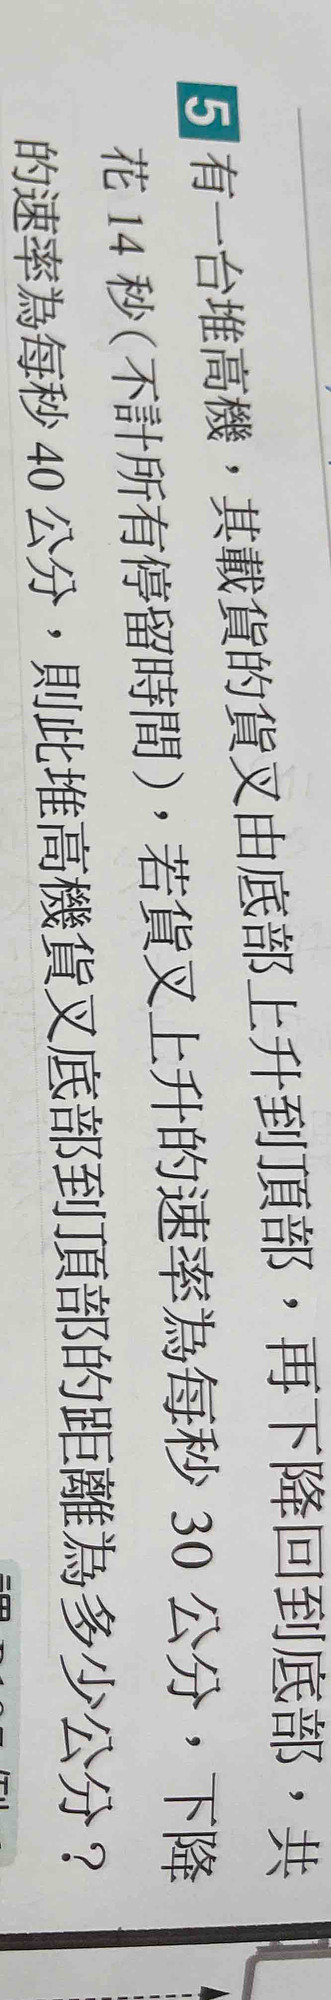 5 有一台堆高機，其載貨的貨叉由底部上升到頂部，再下降回到底部，共
花 14 秒(不計所有停留時間)，若貨叉上升的速率為每秒 30 公分，下降
的速率為每秒 40 公分，則此堆高機貨叉底部到頂部的距離為多少公分？